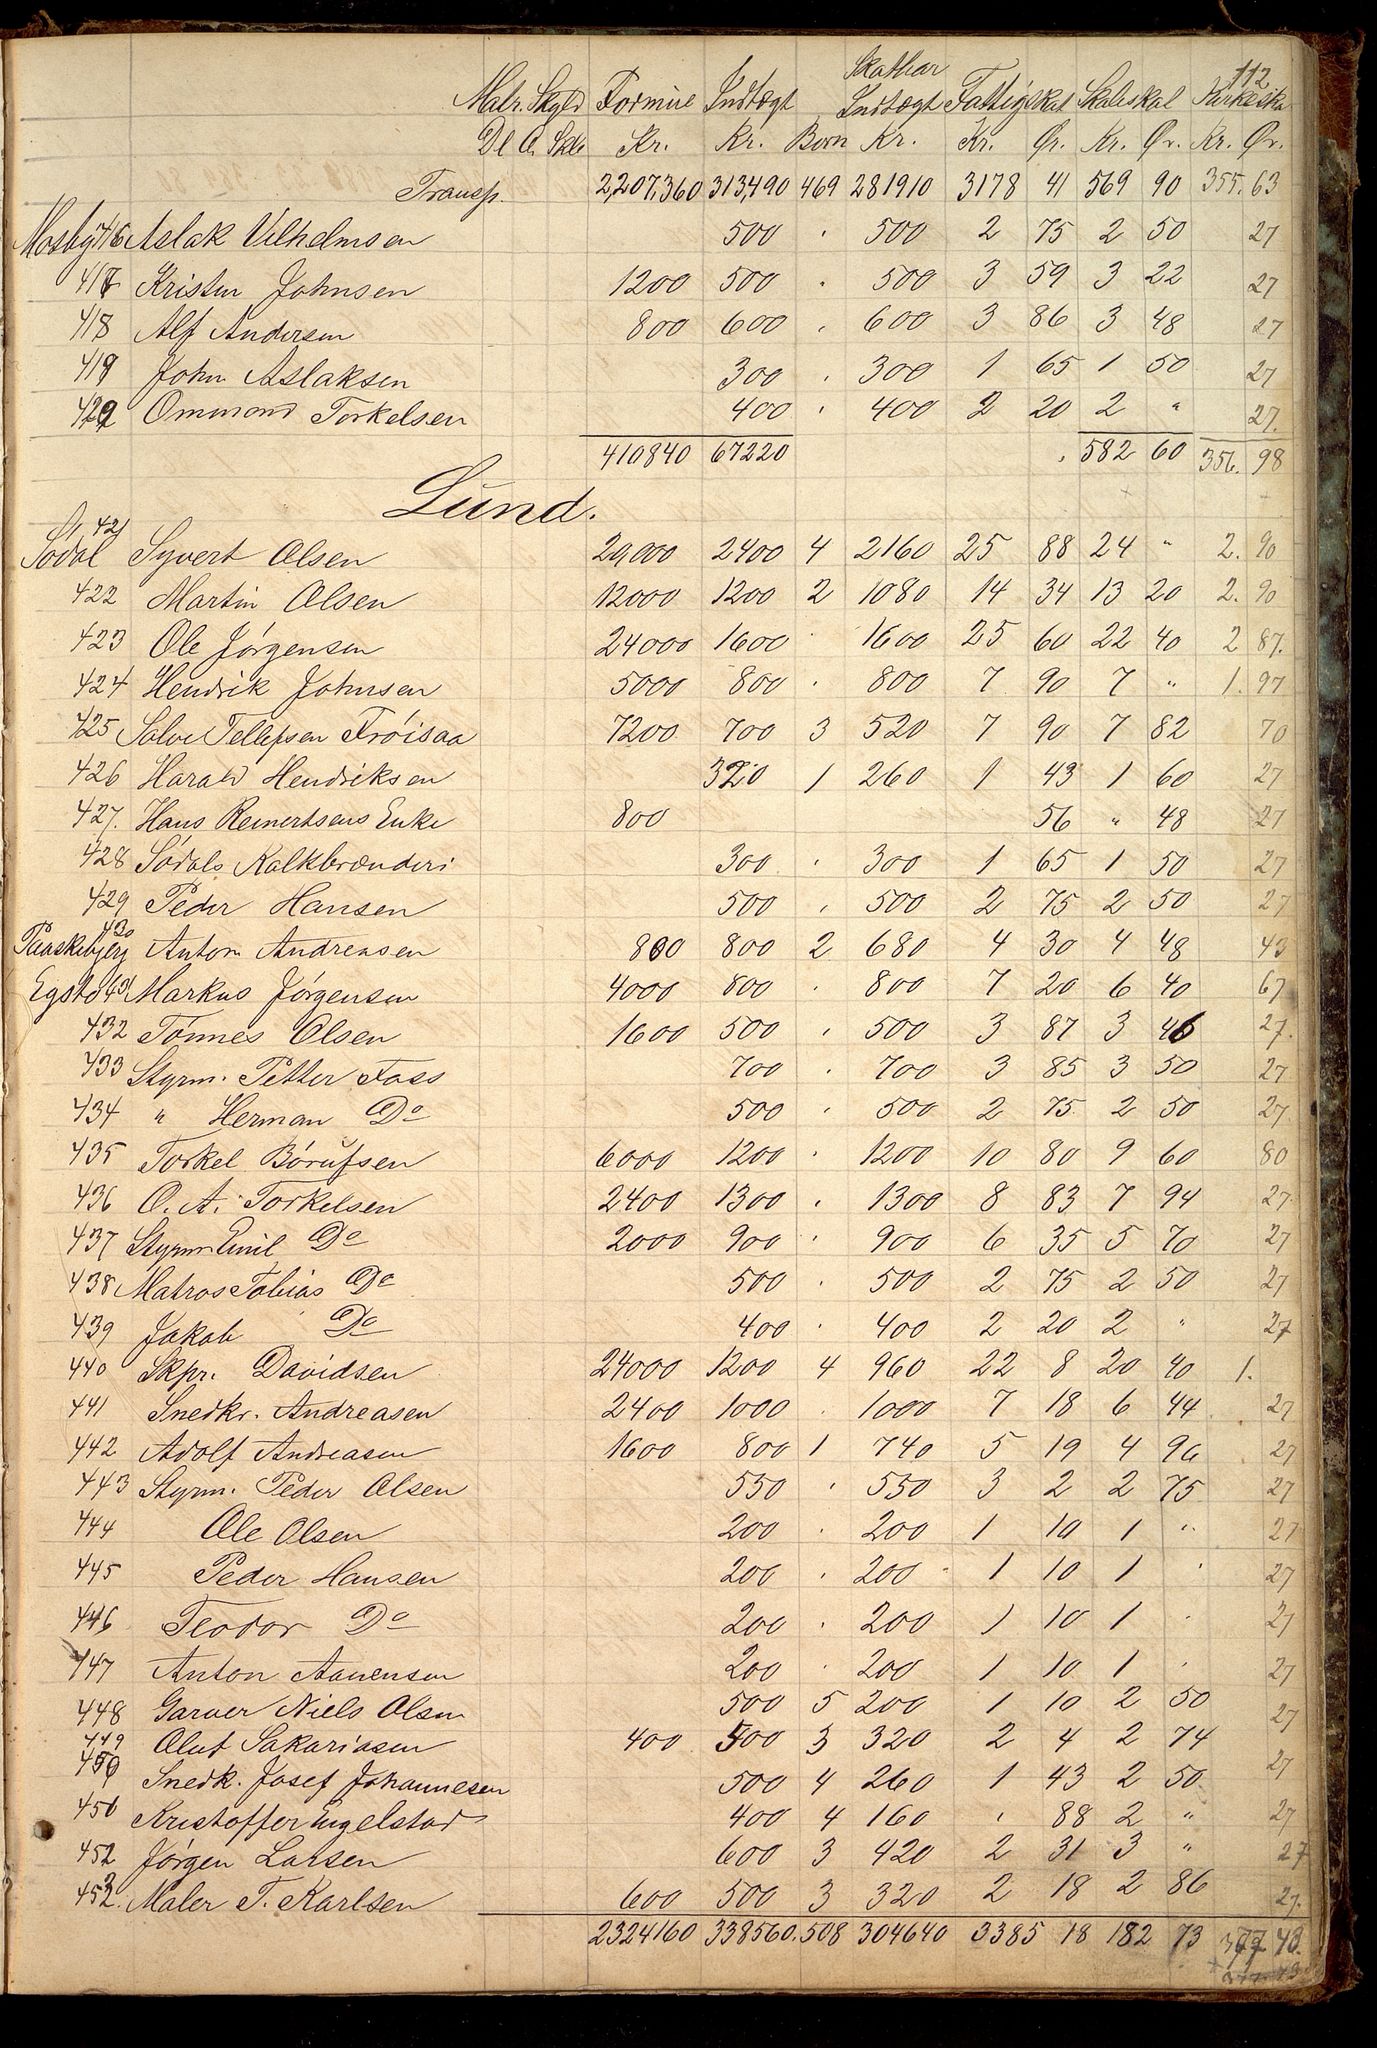 112
Skatbar
Matr. Skyld Formue Indtægt Indtægt Fattigskat Skoleskat Kirkeskat
Dl O. Skil Kr. Kr. Born Kr. Kr. Ør. Kr. Ør. Kr. Ør.
Transp. 2,207,360 313,490 469 281910 3178 41 569 90 355. 63
Mosby 416 Aslak Vilhelmsen 500 " 500 2 75 2 50 27
417 Kristen Johnsen 1200 500 " 500 3 59 3 22 27
418 Alf Andersen 800 600 " 600 3 86 3 48 27
419 John Aslaksen 300 " 300 1 65 1 50 27
420 Ommund Torkelsen 400 " 400 2 20 2 " 27.
410840 67220 582 60 356. 98
Lund.
421
Sødal Syvert Olsen 20,000 2400 4 2160 25 88 24 " 2. 90
422 Martin Olsen 12000 1200 2 1080 14 34 13 20 2. 90
423 Ole Jørgensen 24000 1600 " 1600 25 60 22 40 2 87.
424 Hendrik Johnsen 5000 800 " 800 7 90 7 " 1. 97
425 Salve Tellefsen Frøisaa 7200 700 3 520 7 90 7 82 70
426 Harald Hendriksen 320 1 260 1 43 1 60 27
427. Hans Reinertsens Enke 800 56 " 48 27
428 Sødals Kalkbrænderi 300 " 300 1 65 1 50 27
429 Peder Hansen 500 " 500 2 75 2 50 27
430
Paaskebjerg Anton Andreasen 800 800 2 680 4 30 4 48 43
Egstø 431 Markus Jørgensen 4000 800 " 800 7 20 6 40 67
432 Tønnes Olsen 1600 500 " 500 3 87 3 46 27.
433 Styrm. Petter Foss 700 " 700 3 85 3 50 27
434 " Herman Do 500 " 500 2 75 2 50 27.
435 Torkel Børufsen 6000 1200 " 1200 10 80 9 60 80
436 O. A. Torkelsen 2400 1300 " 1300 8 83 7 94 27
437 Styrm Emil Do 2000 900 " 900 6 35 5 70 27
438 Matros Tobias Do 500 " 500 2 75 2 50 27
439 Jakob Do 400 " 400 2 20 2 " 27
440 Skpr. Davidsen 24000 1200 4 960 22 8 20 40 1.
441 Snedkr. Andreasen 2400 1000 " 1000 7 18 6 44 27
442 Adolf Andreasen 1600 800 1 740 5 19 4 96 27
443 Styrm. Peder Olsen 550 " 550 3 2 2 75 27
444 Ole Olsen 200 " 200 1 10 1 " 27
445 Peder Hansen 200 " 200 1 10 1 " 27
446 Teodor Do 200 " 200 1 10 1 " 27
447 Anton Aanensen 200 " 200 1 10 1 " 27
448 Garver Niels Olsen 500 5 200 1 10 2 50 27
449 Oluf Sakariasen 400 500 3 320 2 4 2 74
450 Snedk. Josef Johannesen 500 4 260 1 43 2 50 27
451 Kristoffer Engelstad 400 4 160 " 88 2 " 27
452 Jørgen Larsen 600 3 420 2 31 3 " 27
453. Maler T. Karlsen 600 500 3 320 2 18 2 86 27.
2324160 338560. 508 304640 3385 18 182 73 377 43.